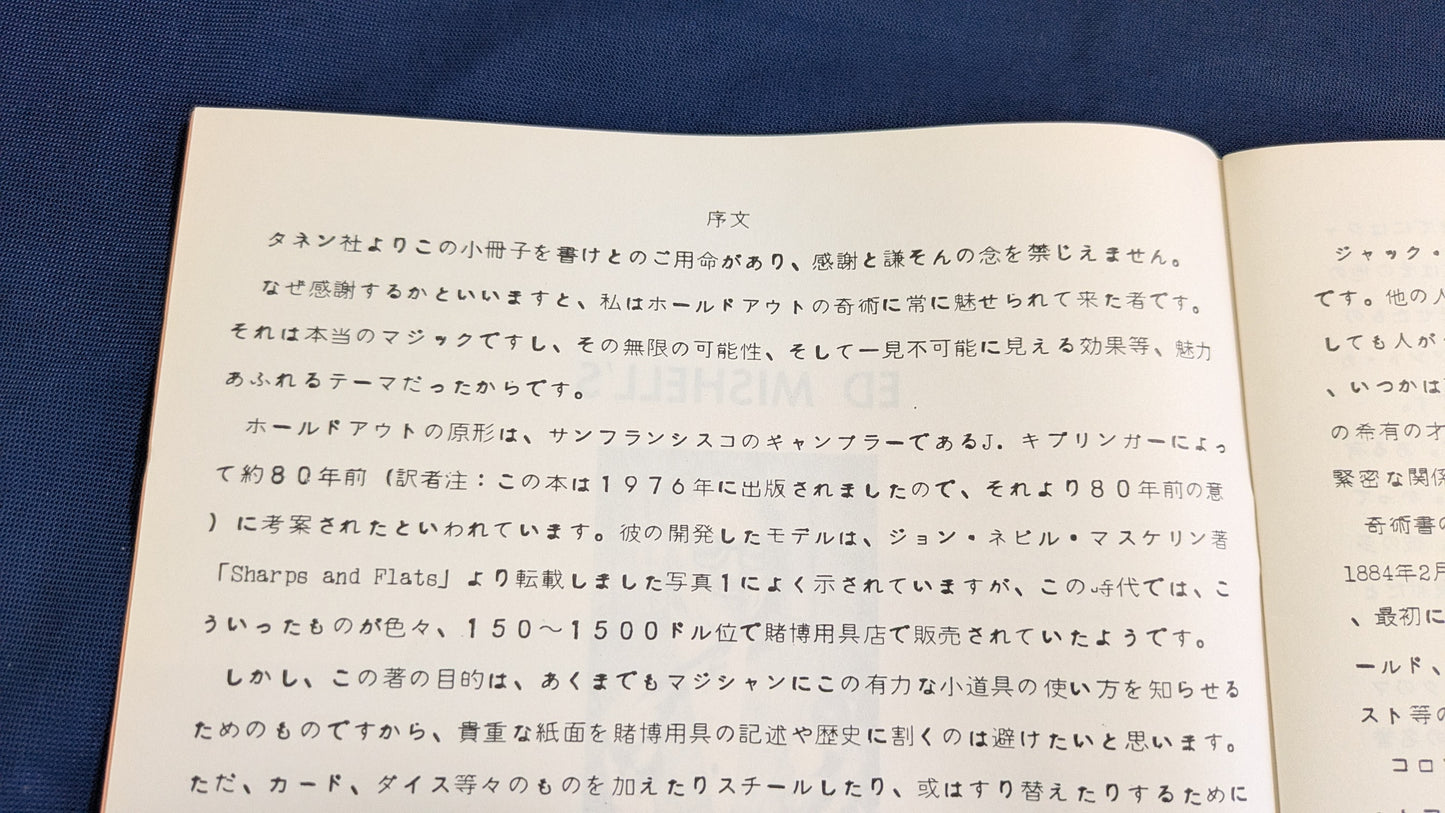 序文
タネン社よりこの小冊子を書けとのご用命があり、感謝と謙そんの念を禁じえません。
なぜ感謝するかといいますと、私はホールドアウトの奇術に常に魅せられて来た者です。
それは本当のマジックですし、その無限の可能性、そして一見不可能に見える効果等、魅力
あふれるテーマだったからです。
ホールドアウトの原形は、サンフランシスコのギャンブラーであるJ. キプリンガーによっ
て約80年前（訳者注：この本は1976年に出版されましたので、それより80年前の意
）に考案されたといわれています。彼の開発したモデルは、ジョン・ネビル・マスケリン著
「Sharps and Flats」より転載しました写真1によく示されていますが、この時代では、こ
ういったものが色々、150～1500ドル位で賭博用具店で販売されていたようです。
しかし、この著の目的は、あくまでもマジシャンにこの有力な小道具の使い方を知らせる
ためのものですから、貴重な紙面を賭博用具の記述や歴史に割くのは避けたいと思います。
ただ、カード、ダイス等々のものを加えたりスチールしたり、或はすり替えたりするために
ED MISHELL'S
ジャック・
です。他の人
しても人が
、いつかは
の希有の才
緊密な関係
奇術書の
1884年2月
、最初に
ールド、
スト等の
コロ